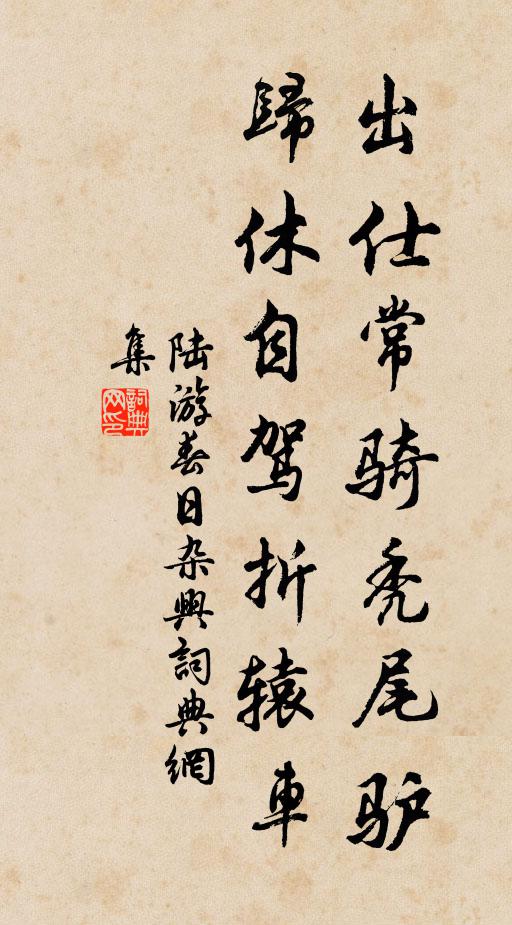 出仕常骑秃尾驴
歸休自驾折辕車
陆游春日杂興詞典網
集
詞典
网印